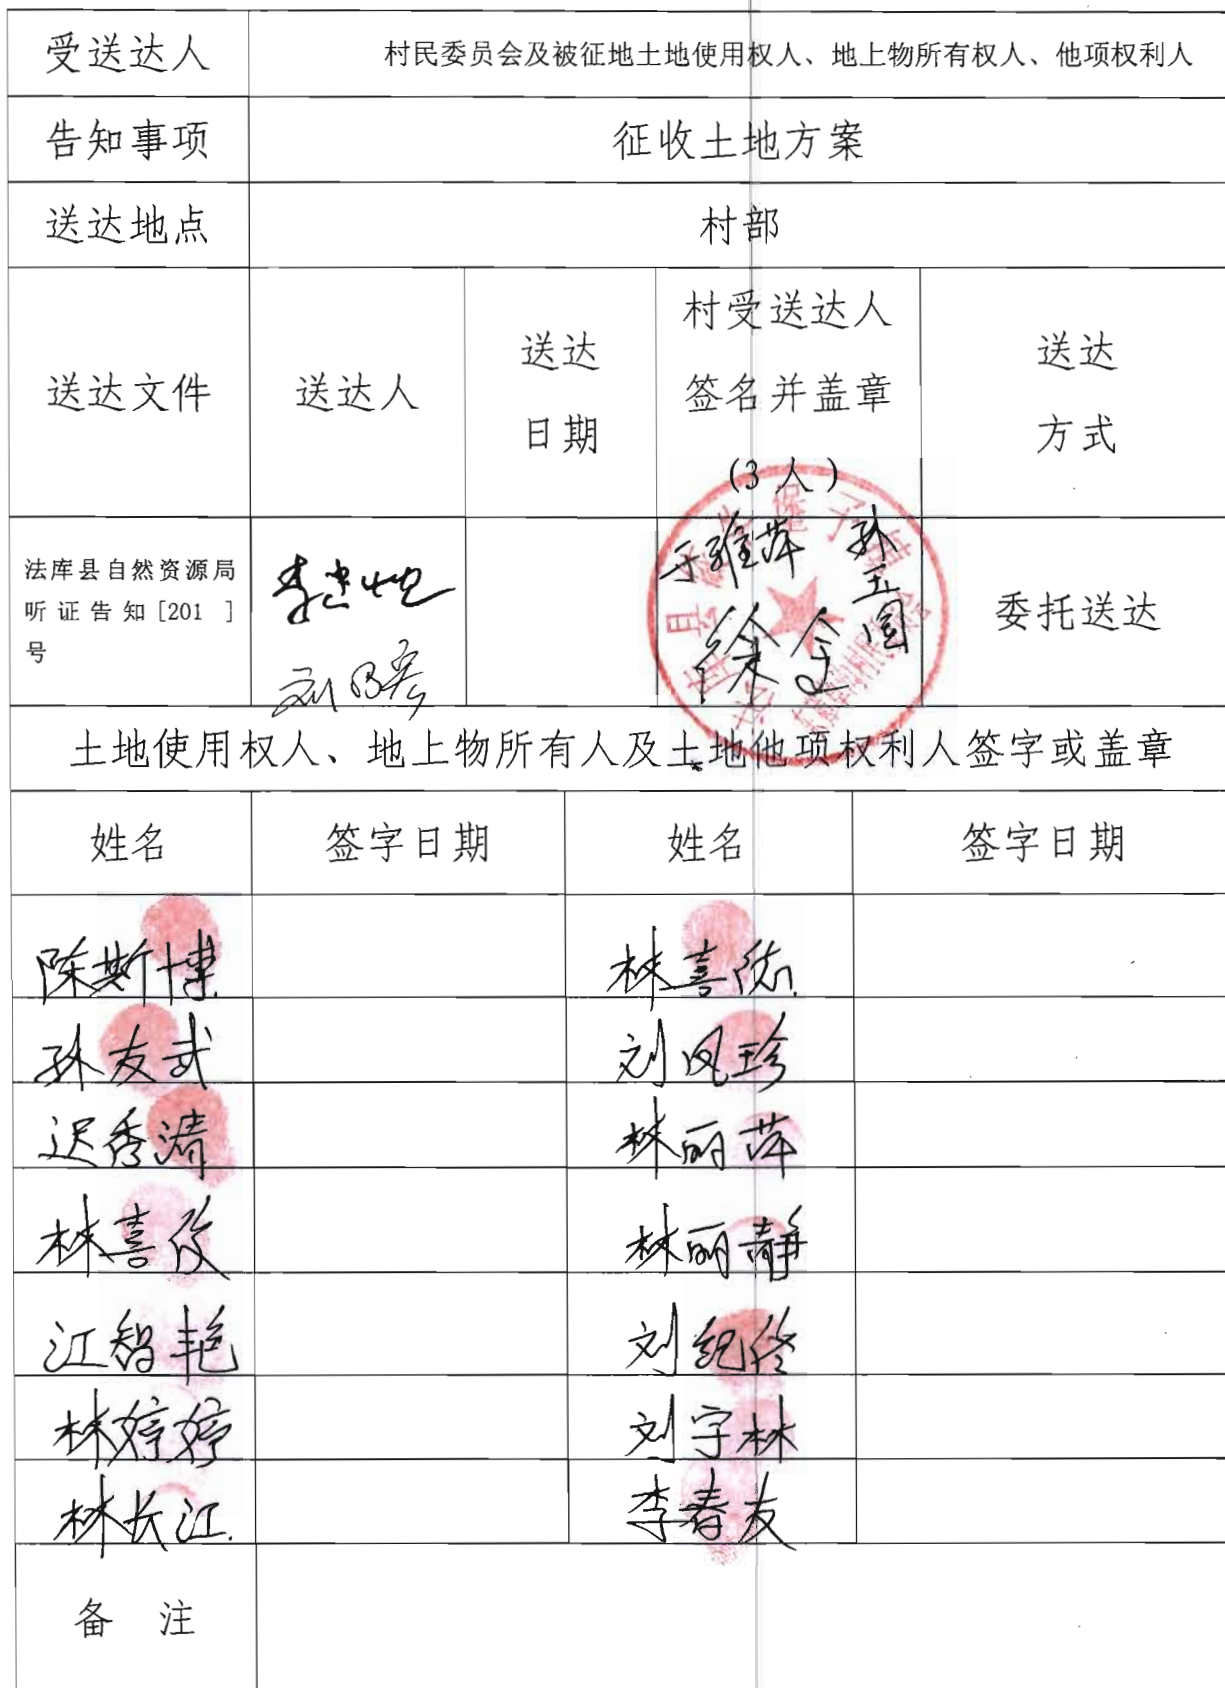 受送达人
村民委员会及被征地土地使用权人、地上物所有权人、他项权利人
告知事项
征收土地方案
送达地点
村部
送达文件
送达人
送达
日期
村受送达人
签名并盖章
(3人)
送达
方式
法库县自然资源局
听证告知[201 ]
号
于雅萍
孙
徐
委托送达
土地使用权人、地上物所有人及土地他项权利人签字或盖章
姓名
签字日期
姓名
签字日期
陈斯博
林喜
孙友武
刘凤珍
迟秀清
林丽萍
林喜俊
林丽静
江智艳
刘纪
林婷婷
刘宇林
林长江
李春友
备 注